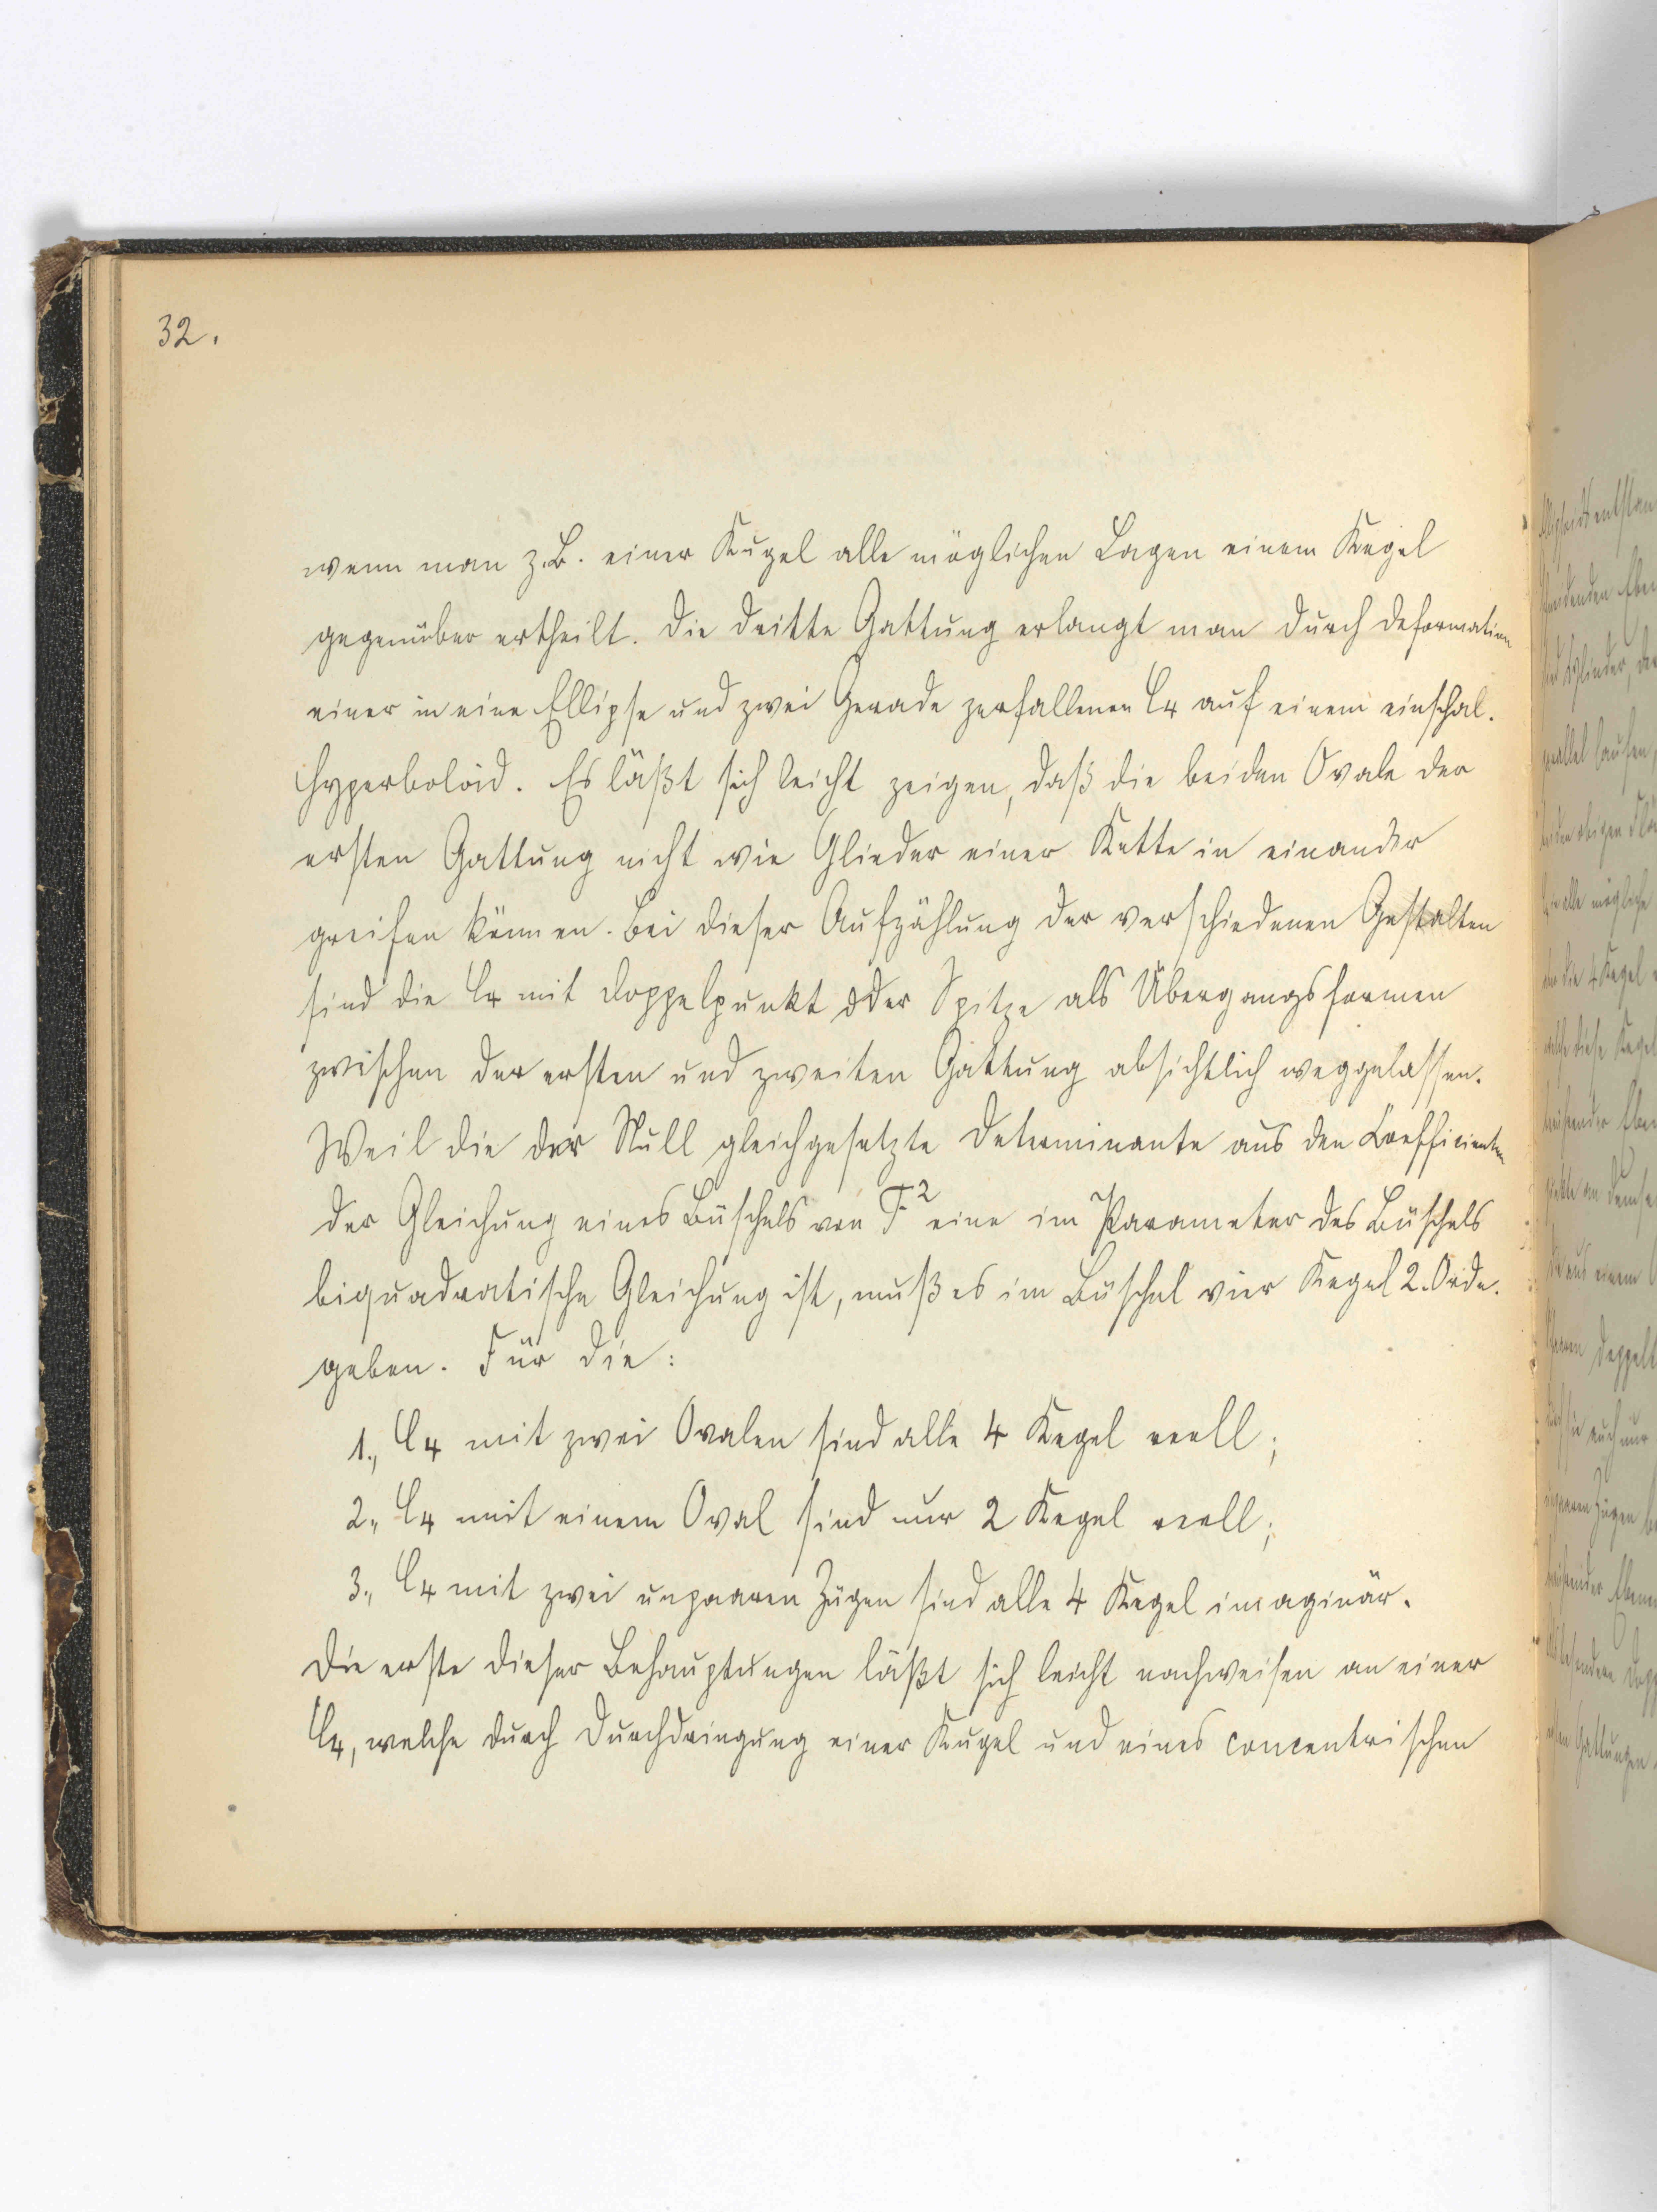 32.
wenn man z.B. einer Kugel alle möglichen Lagen einem Kegel
gegenüber ertheilt. Die dritte Gattung erlangt man durch Deformation
einer in eine Ellipse und zwei Gerade zerfallenen C4 auf einem einschal.
Hyperboloid. Es läßt sich leicht zeigen, daß die beiden Ovale der
ersten Gattung nicht wie Glieder einer Kette in einander
greifen können. Bei dieser Aufzählung der verschiedenen Gestalten
sind die C4 mit Doppelpunkt oder Spitze als Übergangsformen
zwischen der ersten und zweiten Gattung absichtlich weggelassen.
Weil die der Null gleichgesetzte Determinante aus den Coefficienten
der Gleichung eines Büschels von F² eine im Parameter des Büschels
biquadratische Gleichung ist, muß es im Büschel vier Kegel 2. Ordn.
geben. Für die:
1., C4 mit zwei Ovalen sind alle 4 Kegel reell;
2., C4 mit einem Oval sind nur 2 Kegel reell;
3., C4 mit zwei unpaaren Zügen sind alle 4 Kegel imaginär.
Die erste dieser Behauptungen läßt sich leicht nachweisen an einer
C4, welche durch Durchdringung einer Kugel und eines concentrischen